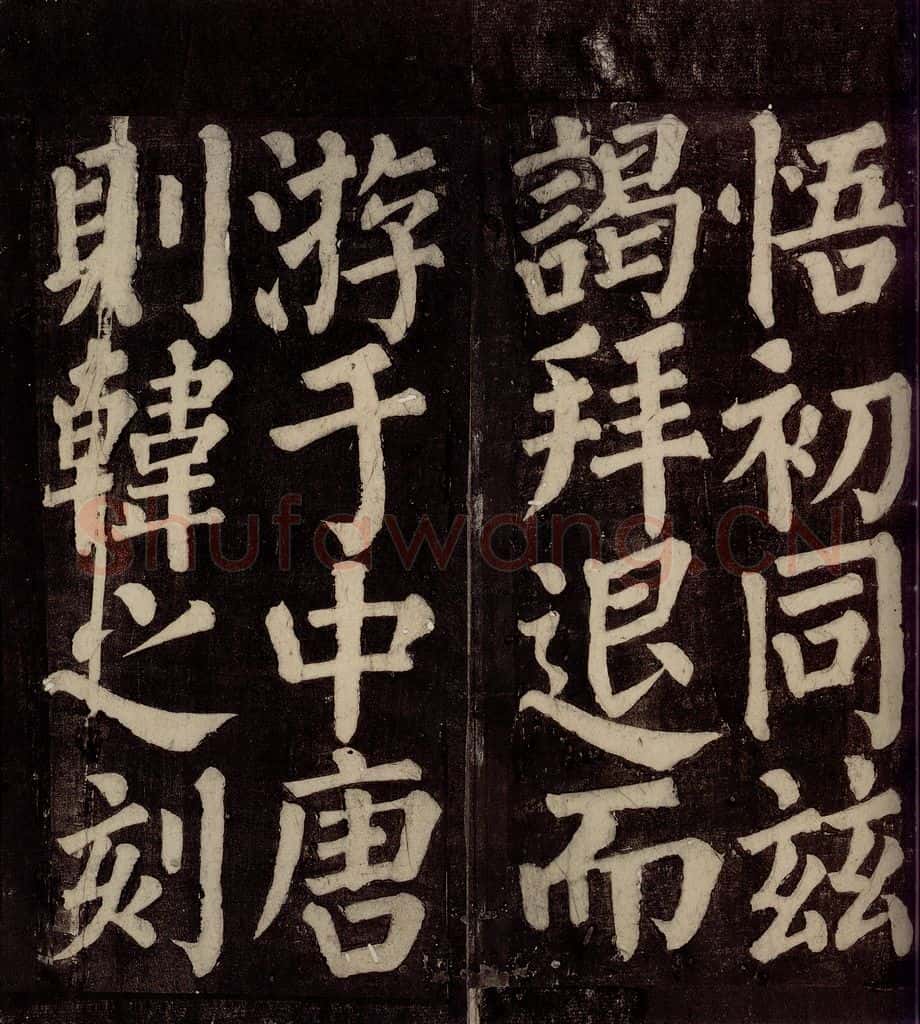 悟初同兹
謁拜退而
游于中唐
則韓之刻
Shufawang.CN